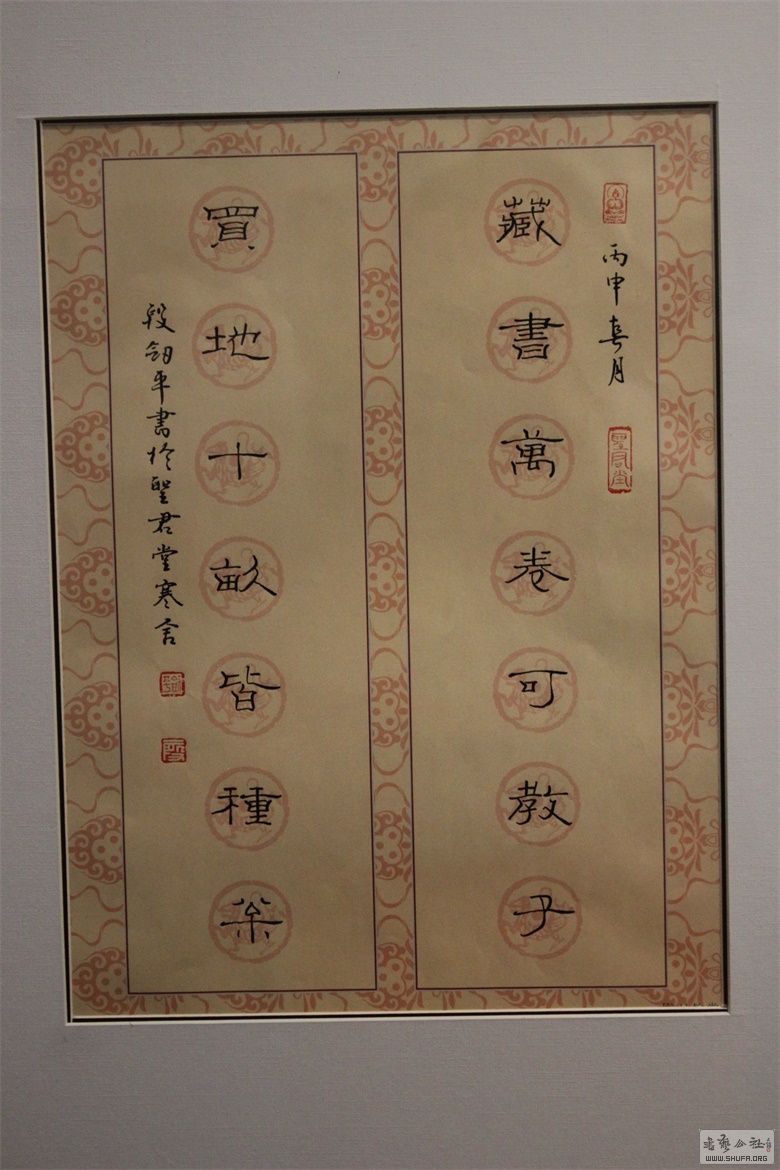 丙申春月
聖君堂
藏書萬卷可教子
買地十畝皆種枀
段劍平書於聖君堂寒舍
书艺公社
WWW.SHUFA.ORG